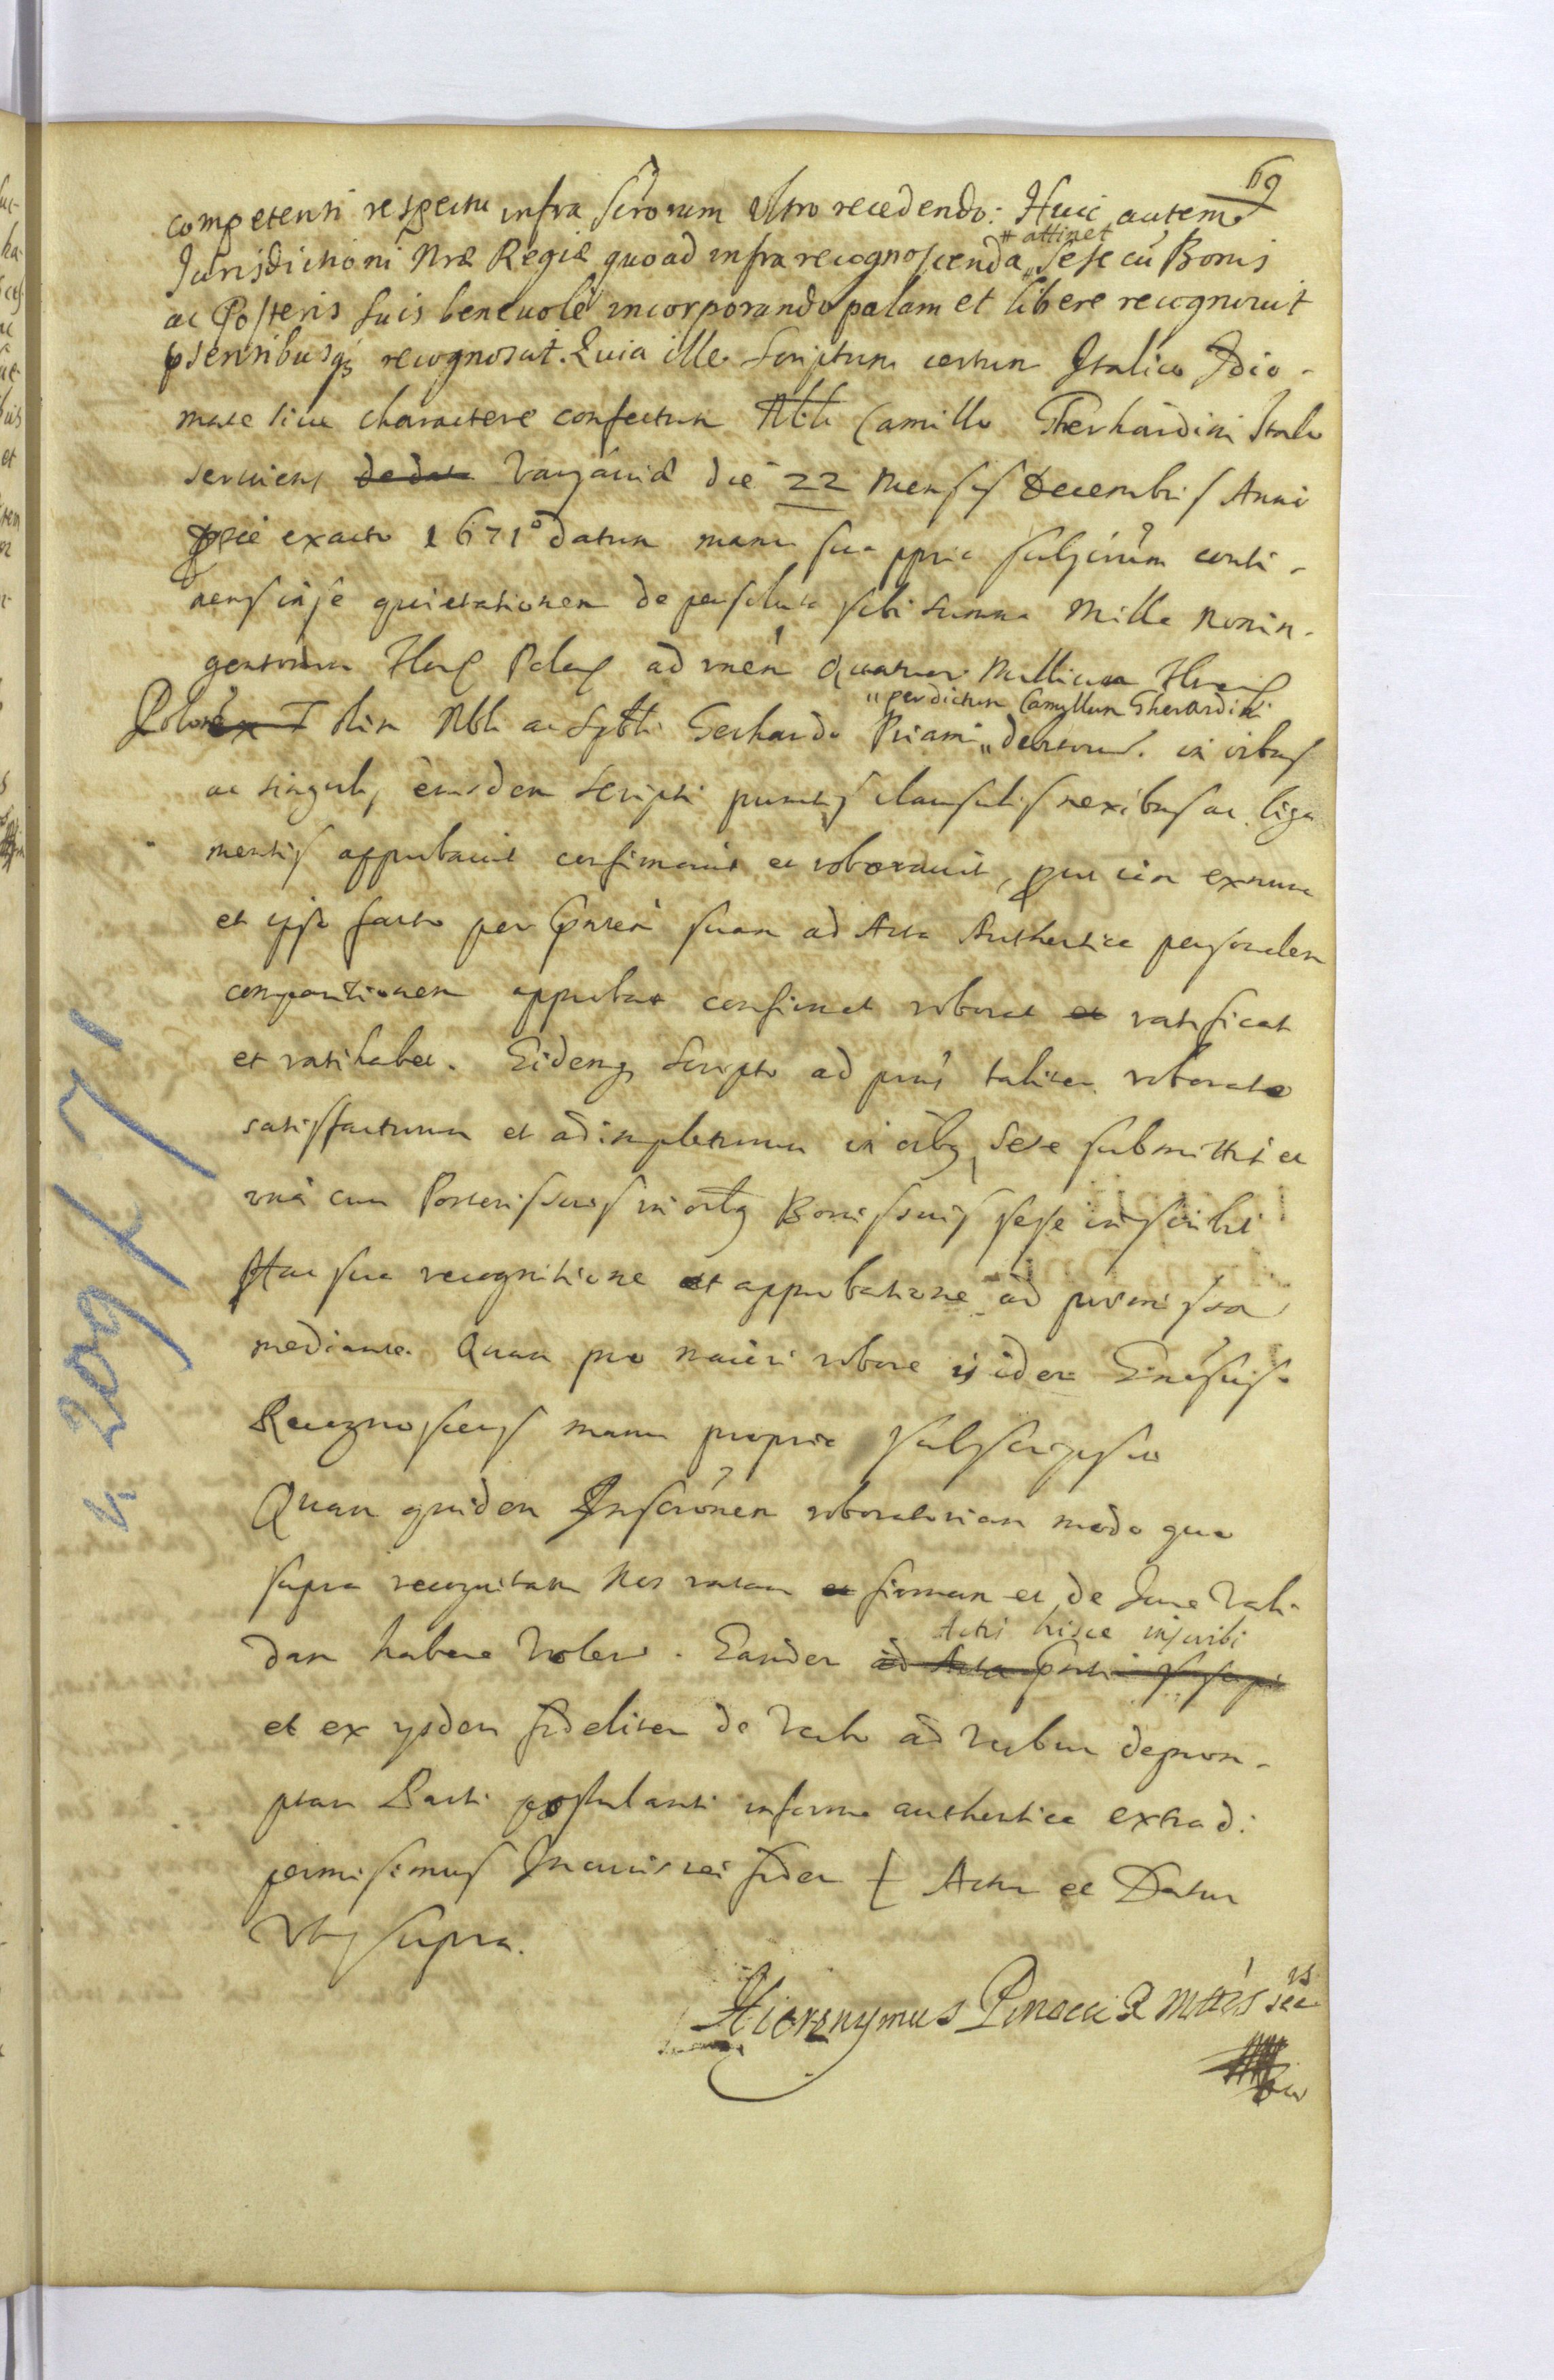 69
competenti respectu infra scrorum vltro recedendo: Huic autem
# attinet
Jurisdictioni Nræ Regiæ quoad infra recognoscenda „ sese cũ Bonis
ac Posteris suis beneuolè incorporando palam et libere recognouit
psentibusq; recognoscit. Quia ille Scriptum certum Italico Idio-
mate siue charactere confectum Nbli Camillo Gherhardini Italo
seruiens de data Varsauiæ die 22 Mensis Decembris Anni
prõe exacto 1671° datum manu sua ppria subscrũm conti-
nens in se quietationem de persoluta sibi summa Mille Nonin-
gentorum Flor Polon ad ratiõem Quatuor Millium Floren
„ per dictum Camyllum Gherardini
Polon olim Nbli ac Spbli Gerhardo Priami „ debitorum in oibus
ac singulis eiusdem scripti punctis clausulis nexibus ac liga
mentis approbauit confirmauit et roborauit, prout iam exnunc
et ipso facto per pntem suam ad Acta Authentica personalem
comparitionem approbat confirmat roborat et ratificat
et ratihabet. Eidemq; scripto ad pñs taliter roborato
satisfacturum et adimpleturum in oibq sese submittit et
vnà cum Posteris suis in oibq Bonis suis sese inscribit
Hac sua recognitione et approbatione ad præmissa
mediante. Quam pro maiori robore is idem Gnõsus
Recognoscens manu propria subscripsit
Quam quidem Inscrõnem roboratoriam modo quo
supra recognitam Nos ratam et firmam et de Jure Vali-
dam habere volens. Eandem ad Acta
Actis hisce inscribi
et ex ysdem fideliter de verbo ad verbum deprom-
ptam Parti postulanti in forma authentica extradi
permisimus In cuius rei fidem Actum et Datum
Vt supra.
Hieronymus Pinocci R Mttis sec
v. 209 f 71